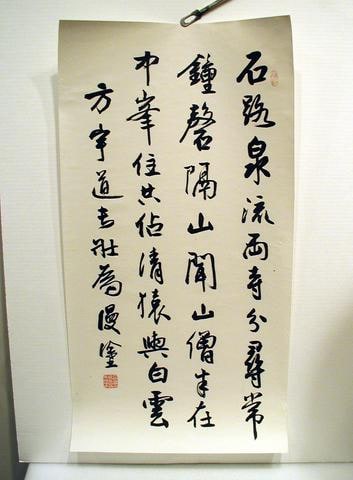 石路泉流兩寺分尋常
鐘磬隔山聞山僧半在
中峯住共佔清猿與白雲
方宇道壯為漫塗